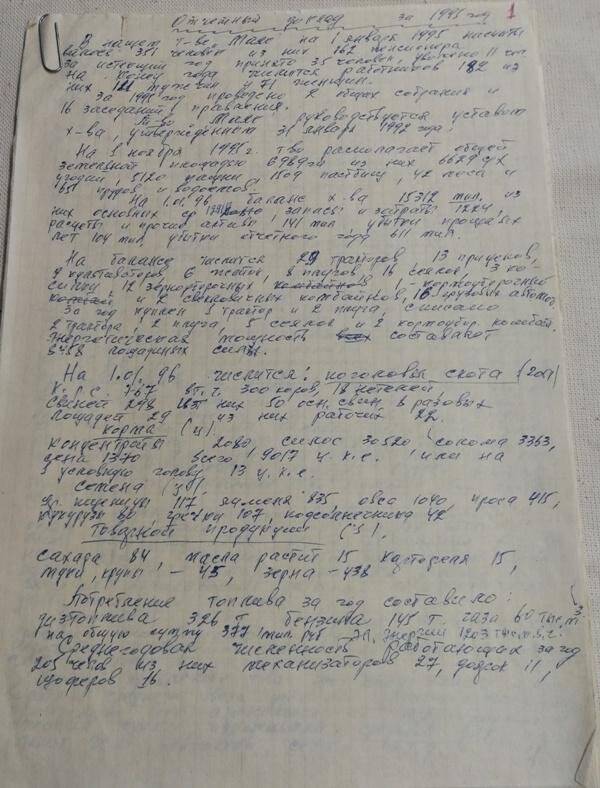 Отчетный доклад за 1995 год 1
В нашем т-ве Маяк на 1 января 1995 числи
лось 351 человек из них 162 пенсионера.
за истекший год принято 35 человек, уволено 11 чел
На конец года числится работников 182 из
них 111 мужчин и 71 женщин.
За 1995 год проведено 2 общих собрания и
16 заседаний правления.
Тв-во Маяк руководствуется уставом
х-ва, утвержденном 31 января 1992 года.
На 1 ноября 1995 г. т-во располагает общей
земельной площадью из них 6629 га с/х
угодий, 5120 пашни 1509 пастбищ, 42 леса и
прудов и водоемов.
На 1.01.96 баланс х-ва 15312 мил. из
них основных ср запасы и затраты 1224,
расчеты и прочие активы 141 мил убытки прошлых
лет 104 мил. убытки отчетного года 611 мил.
На балансе числится 29 тракторов 13 прицепов,
9 культиваторов 6 жаток, 8 плугов, 16 сеялок, 3 ко-
силки, 12 зерноуборочных комбайнов, - кормоуборочный
и 2 свекловичных комбайнов, 16 грузовых автом.
За год куплен 1 трактор и 2 плуга, списано
2 трактора, 2 плуга, 5 сеялок и 2 кормоубор. комбай.
Энергетическая мощность составляет
8458 лошадиных сил.
На 1.01.96 числится: поголовья скота (гол)
К.Р.С 767 в т.ч. 300 коров, 18 нетелей
Свиней 248 из них 50 осн. свин. в разовых
лошадей 29 из них рабочих 22.
Корма (ц)
концентраты 2080, силос 30520 солома 3363,
сена 1370 всего 19017 ц. к.е. или на
1 условную голову 13 ц. к.е.
Семена (ц)
оз. пшеницы 117, ячменя 835 овса 1040, проса 415,
кукурузы 60 гречки 107, подсолнечника 42
Товарной продукции (ц),
сахара 84, масла растит 15 картофеля 15,
муки, крупы - 45, зерна - 438
Потребление топлива за год составило:
дизтоплива 326 т бензина 145 т. газа 60 тыс. м3
на общую сумму 377 мил. руб эл. энергии 1203 тыс. к.в.ч.
Среднегодовая численность работающих за год
205 чела из них механизаторов 27, доярок 11,
шоферов 16.